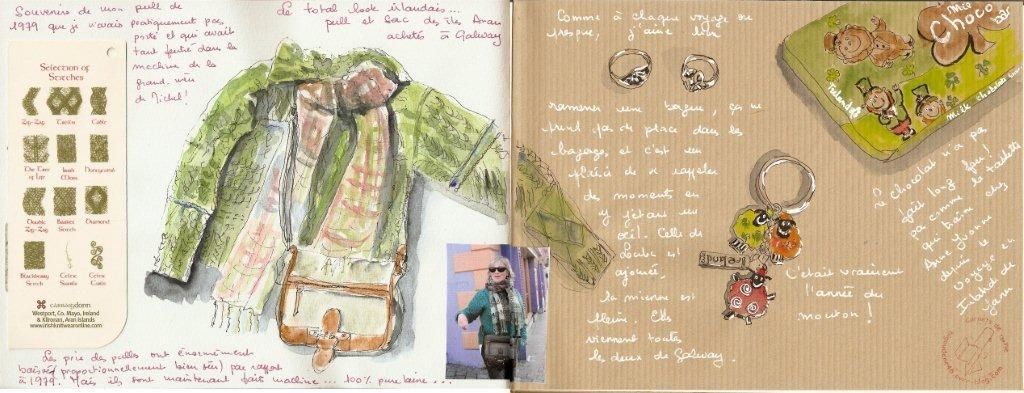 Souvenir de mon pull de
1979 que je n'avais pratiquement pas
porté et qui avait
tant feutré dans la
machine de la
grand-mère
de Michel!
Le total look irlandais...
pull et sac des îles Aran
achetés à Galway
Selection of
Stitches
Zig-Zag
Trellis
Cable
The Tree
of Life
Irish
Moss
Honeycomb
Double
Zig-Zag
Basket
Stitch
Diamond
Blackberry
Stitch
Celtic
Celtic
Westport, Co. Mayo, Ireland
& Kilronan, Aran Islands
www.irishknitwearonline.com
Les prix des pulls ont énormément
baissé (proportionnellement bien sûr) par rapport
à 1979. Mais ils sont maintenant faits machine... 100% pure laine...
Comme à chaque voyage ou
presque, j'aime bien
ramener une bague, ça ne
prend pas de place dans les
bagages, et c'est un
plaisir de se rappeler
des moments en
y jetant un
œil. Celle de
est
ajourée,
la mienne est
pleine. Elles
viennent toutes
les deux de Galway.
Choco
Ireland
Milk chocolate
Le chocolat n'a pas
fait long feu!
pas comme la tablette
qui traîne chez
Anne-Yvonne
depuis le
voyage en
Irlande de
Yann
C'était vraiment
l'année du
mouton!
Carnets de